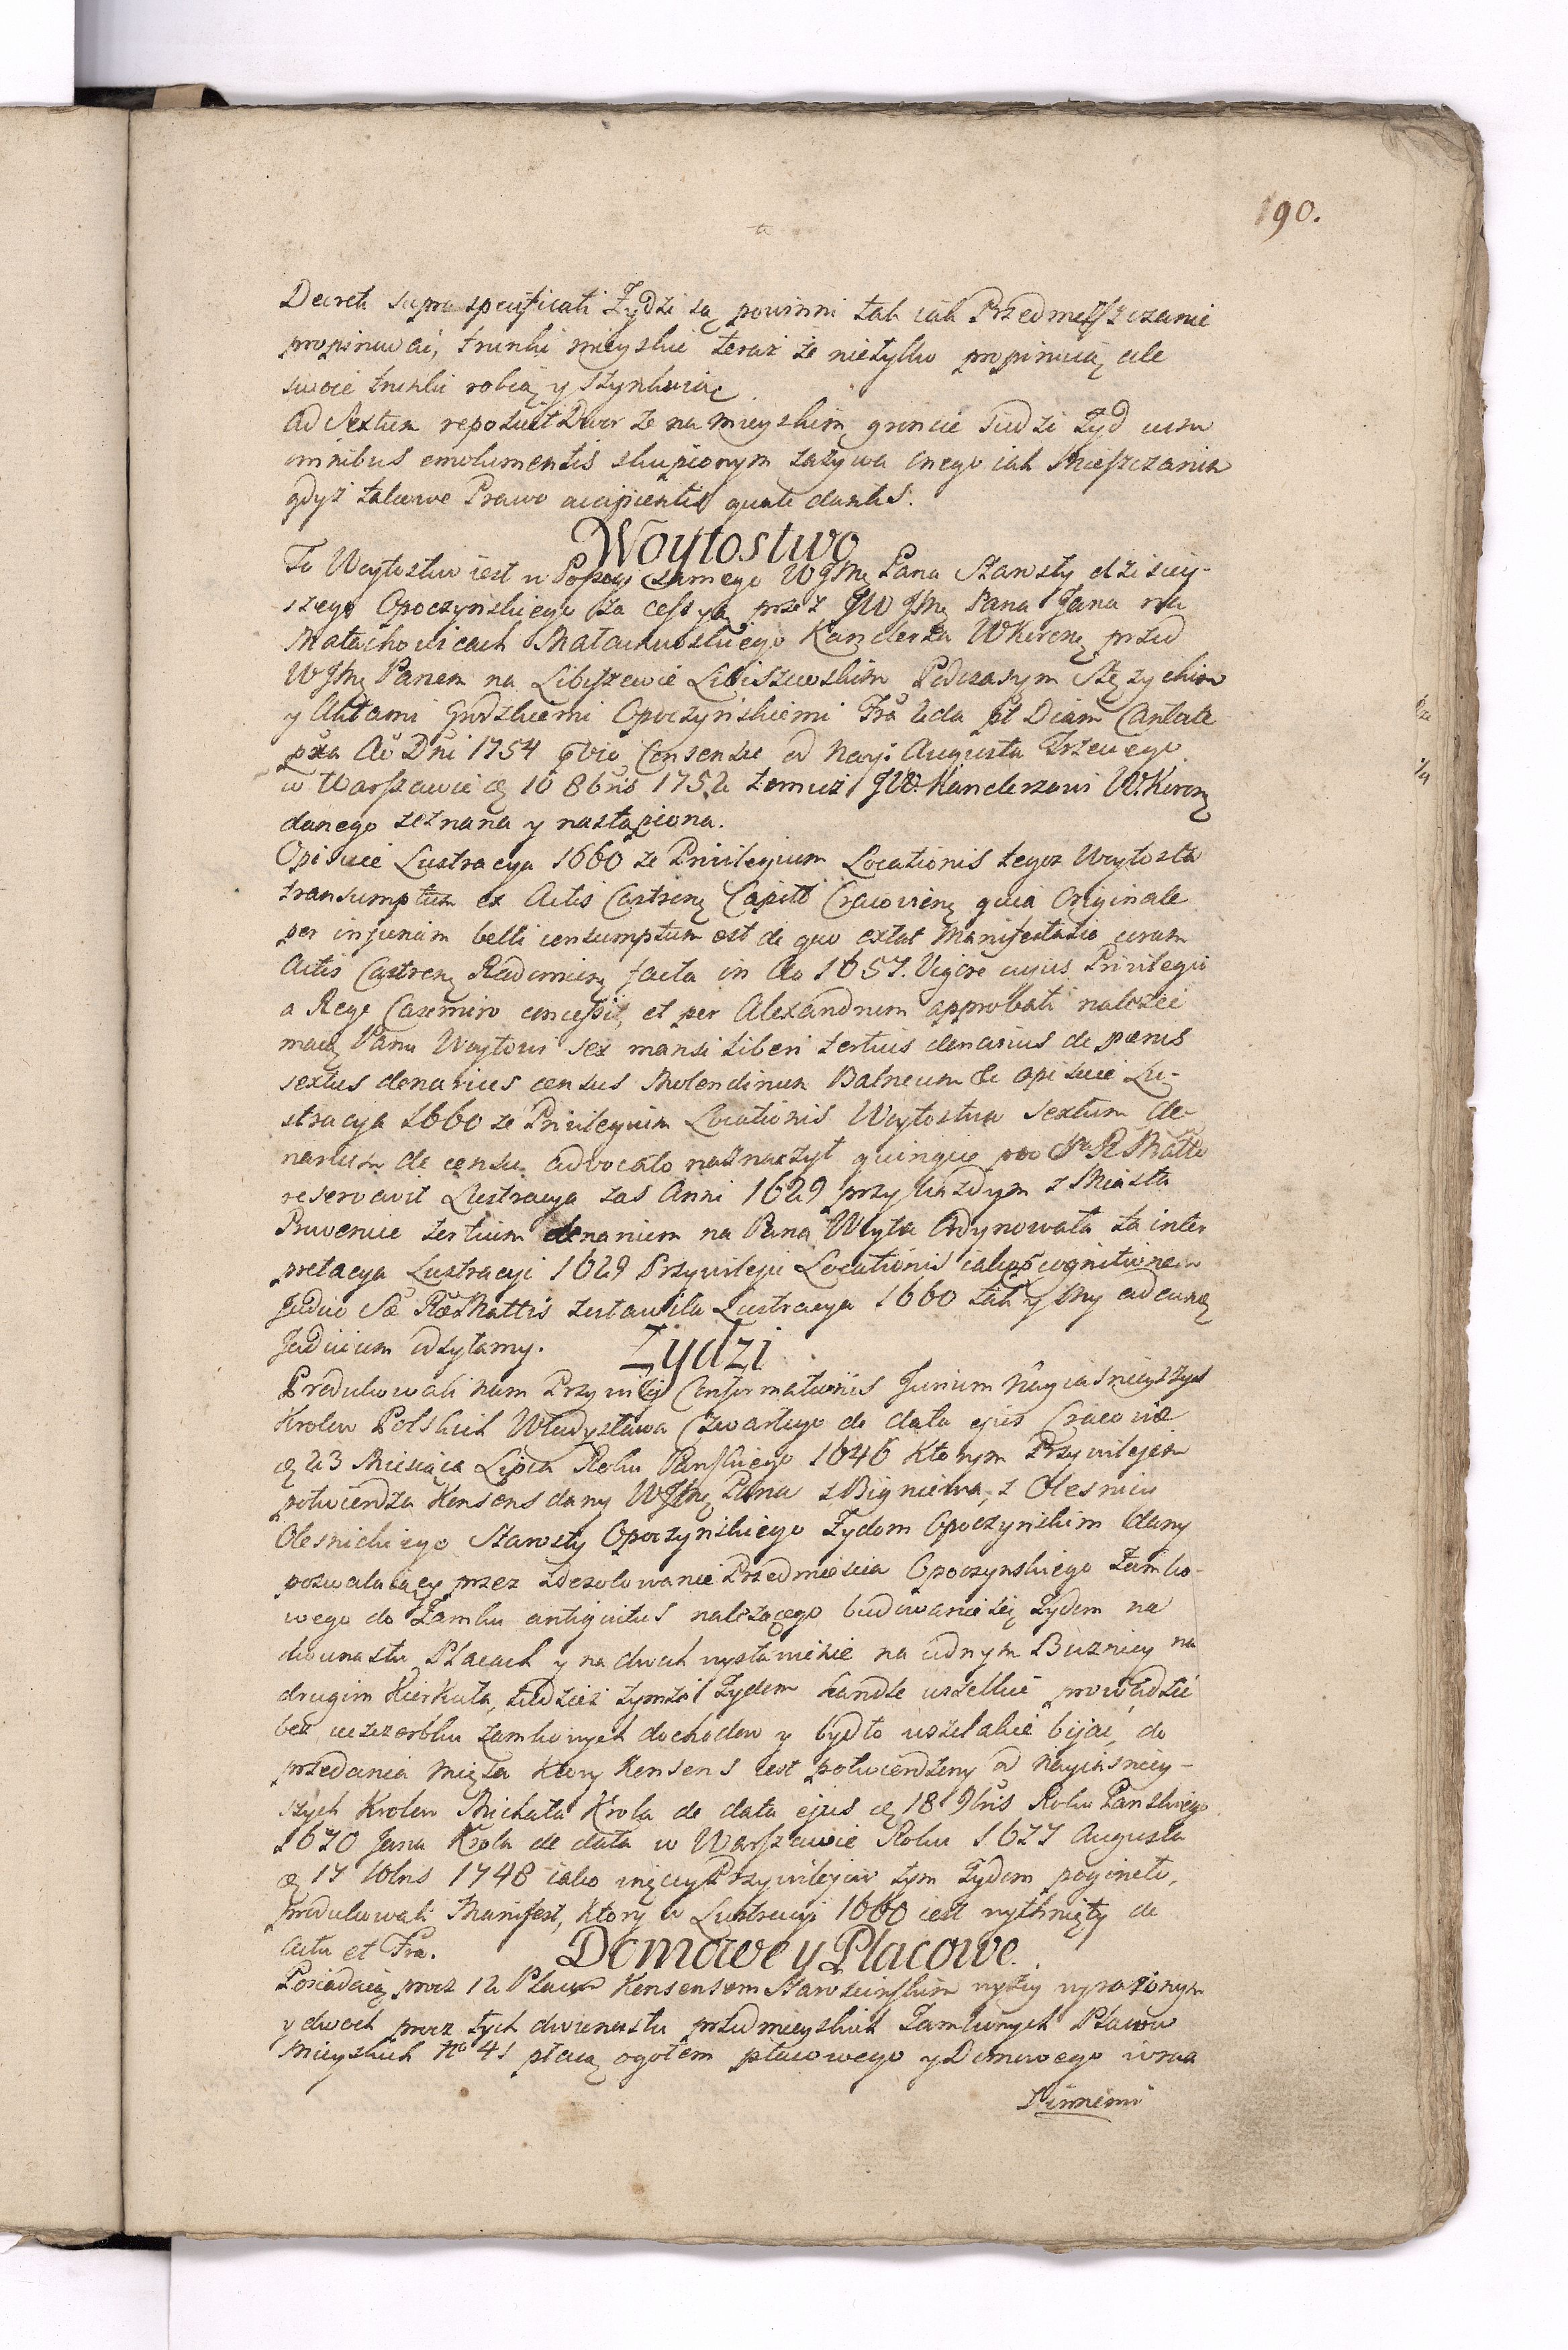 190.
Decreta supra specificati Żydzi są powinni tak iak Przedmieszczanie
propinować, trunki mieyskie teraz że nietylko propinuią ale
swoie trunki robią y szynkuią
Ad Sextum reposuit Dwor że na mieyskim gruncie siedzi Żyd cum
omnibus emolumentis skupionym zażywa onego iak Mieszczanin
gdyż takowe Prawo accipientis quale dantis.
Woytostwo
To Woytostwo iest w Possesyi samego WJMć Pana Starosty dzisiey-
szego Opoczynskiego za cessyą przez JW JMć Pana Jana na
Małachowicach Małachowskiego Kanclerza WKoronę przed
WJMć Panem na Libiszewie Libiszewskim Podczaszym Stężyckim
y Aktami Grodzkiemi Opoczynskiemi Fra 2da pt Diam Cantate
pxa Ao Dni 1754 qvio Consensu od Nayj: Augusta Trzeciego
w Warszawie d 10 8bris 1752 temuż JW. Kanclerzowi W.Koronę
danego zeznana y nastąpiona.
Opisuie Lustracya 1660 że Privilegium Locationis tegoż Woytostwa
transumptum ex Actis Castrenę Capitt Cracovienę quia Originale
per injuriam belli consumptum est de quo extat Manifestatio coram
Actis Castrenę Radomienę facta in Ao 1657. Vigore cujus Privilegii
a Rege Casimiro concessi, et per Alexandrum approbati należeć
maią Panu Woytowi sex mansi liberi tertius denarius de pænis
sextus denarius census Molendinum Balneum &c opisuie Lu-
stracya 1660 że Privilegium Locationis Woytostwa sextum de-
narium de censu advocato naznaczył quinque pro Sa R Matte
reservavit Lustracya zas Anni 1629 przy każdym z Miasta
Prowencie tertium denarium na Pana Woyta Ordynowała ta inter
pretacya Lustracyi 1629 Przywileju Locationis iako cognitionem
Judicio Sæ Ræ Mattis zostawiła Lustracya 1660 tak y My ad eundę
Judicium odsyłamy.
Żydzi
Produkowali nam Przywiley Confirmationis Jurium Nayiasnieyszych
Krolow Polskich Władysława Czwartego de data ejus Cracoviæ
d 23 Miesiąca Lipca Roku Pańskiego 1646 Ktorym Przywilejem
potwierdza Konsens dany WJMć Pana Zbigniewa, z Olesnicy
Olesnickiego Starosty Opoczynskiego Żydom Opoczynskim dany
pozwalaiący przez zdezolowanie Przedmiescia Opoczynskiego Zamko-
wego do Zamku antiquitus należącego budowanie się Żydom na
dwunastu Placach y na dwoch wystawienie na iednym Buznicy na
drugim Kierkuta, tudzież tymże Żydom handle wszelkie prowadzić
bez uszczerbku zamkowych dochodow y bydło wszelakie bijać, do
przedania mięsa Ktory Konsens iest potwierdzony od Nayiasniey-
szych Krolow Michała Krola de data ejus d 18 9bris Roku Pańskiego
1670 Jana Krola de data w Warszawie Roku 1677 Augusta
d 17 10bris 1748 iako więcey Przywilejow tym Żydom pogineło,
produkowali Manifest, Ktory w Lustracyi 1660 iest wytknięty de
actu et Fra.
Domowe y Placowe.
Posiadaią procz 12 Placow Konsensem Starościnskim wyżey wyrażonym
y dwoch procz tych dwunastu przedmieyskich Zamkowych Placow
Mieyskich No 41 płacą ogołem placowego y Domowego wraz
z innemi